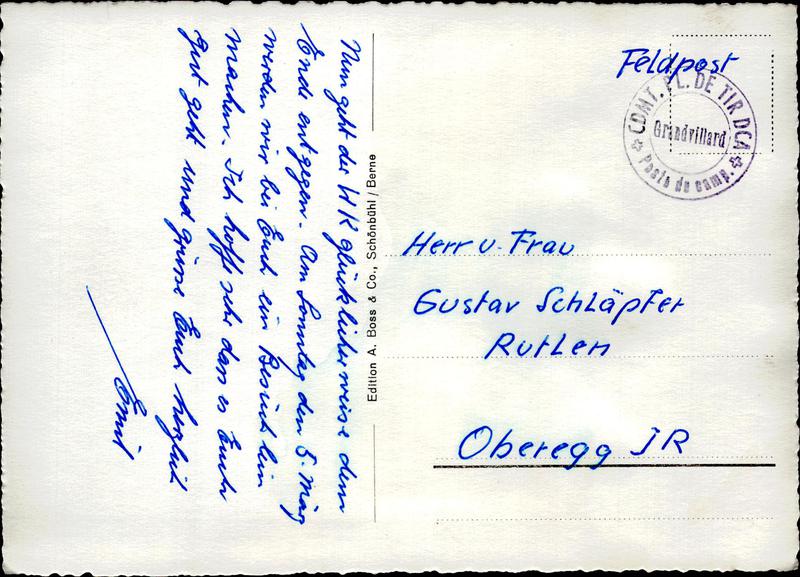 Nun geht der WK glücklicherweise dem
Ende entgegen. Am Sonntag den 5. März
werden wir bei Euch ein Besüchlein
machen. Ich hoffe sehr dass es Euch
gut geht und grüsse Euch herzlich
Emil
Edition A. Boss & Co., Schönbühl / Berne
Feldpost
CDMT. PL. DE TIR DCA
Grandvillard
Poste de camp.
Herr u. Frau
Gustav Schläpfer
Rutlen
Oberegg IR